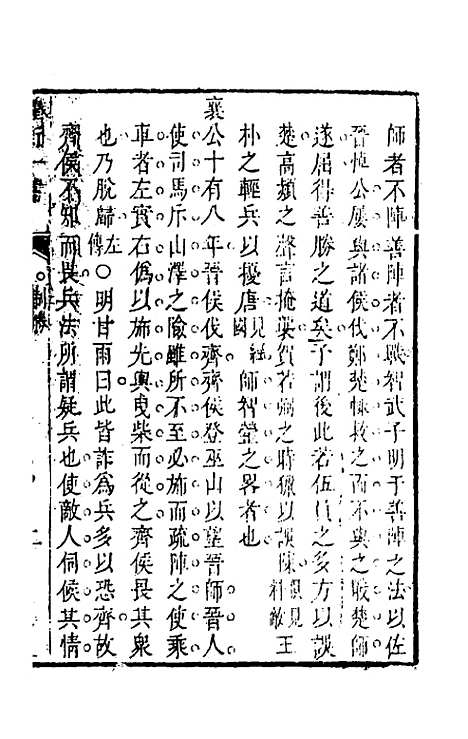 師者不陣善陣者不戰智武子明于善陣之法以佐
晉悼公屢與諸侯伐鄭楚慄救之而不與之戰楚師
遂屈得善勝之道矣予謂後此若伍員之多方以誤
楚高熲之聲言掩襲賀若弼之時獵以誤陳 王
朴之輕兵以擾唐 師智罃之畧者也
襄公十有八年晉侯伐齊齊侯登巫山以望晉師晉人
使司馬斥山澤之險雖所不至必旆而疏陣之使乘
車者左實右偽以旆先輿曳柴而從之齊侯畏其衆
也乃脫歸左傳〇明甘雨曰此皆詐為兵多以恐齊故
齊侯不知而畏兵法所謂疑兵也使敵人伺候其情